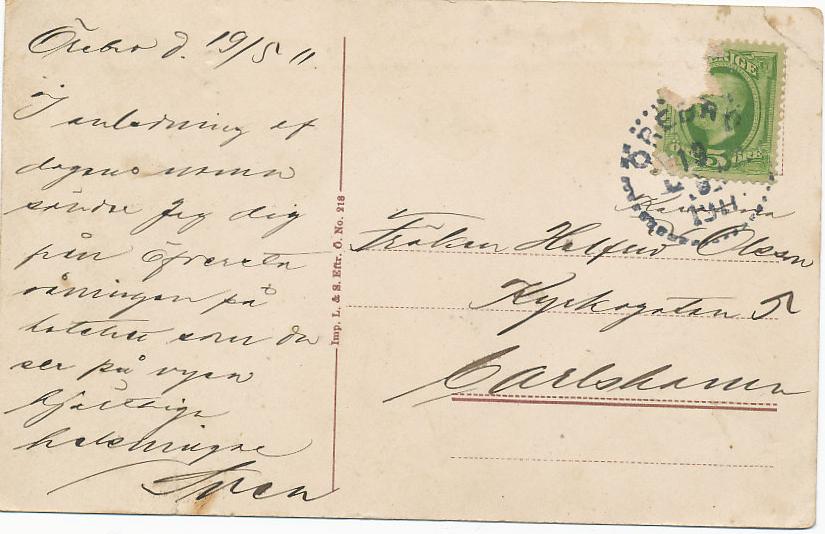 Örebro d. 19/5 11.
I anledning af
dagens namn
sänder Jag dig
från öfversta
våningen på
hotellet som du
ser på vyen
hjärtliga
helsningar
Sven
Imp. L. & S. Eftr. Ö. No. 218
ÖREBRO
19
5
1911
Fröken Helfrid Olson
Kyrkogatan 5
Carlshamn